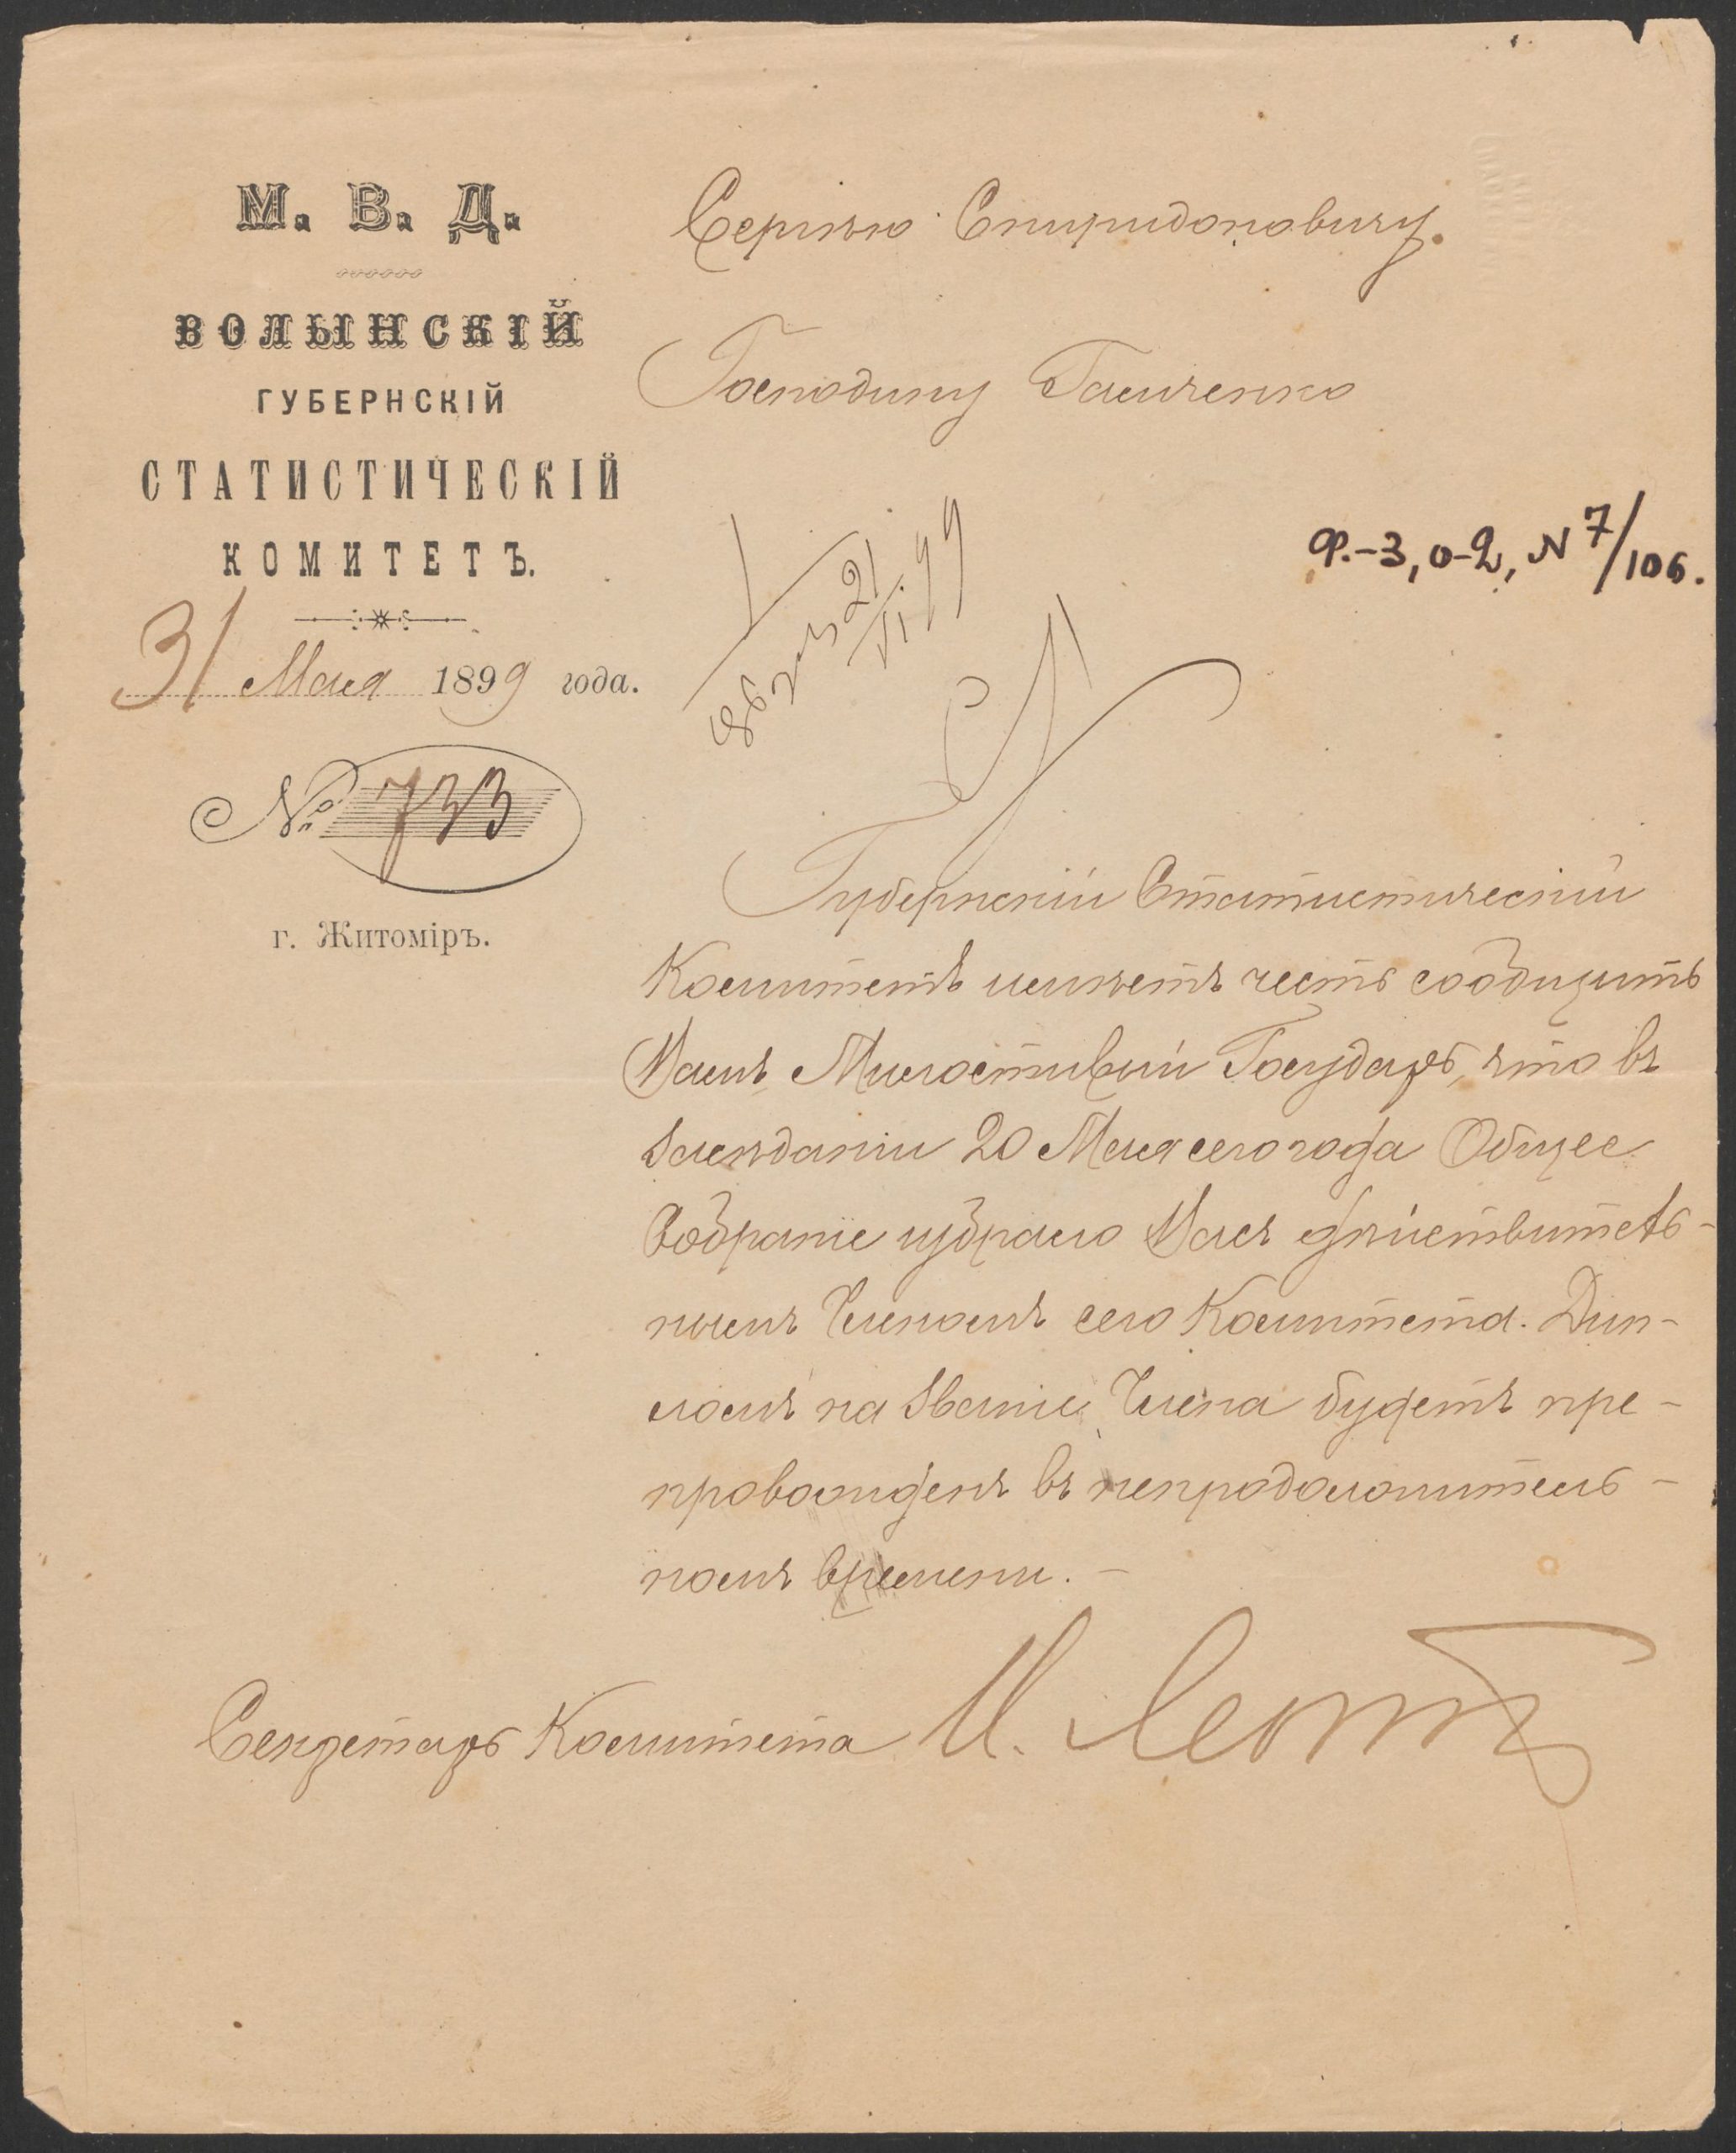 М. В. Д.
ВОЛЫНСКІЙ
ГУБЕРНСКІЙ
СТАТИСТИЧЕСКІЙ
КОМИТЕТЪ.
31 Мая 1899 года.
№ 733
г. Житоміръ.
Сергѣю Спиридоновичу.
Господину Гамченко
21/VI 99
Ф.-3, о-2, N 7/106.
Губернскій Статистическій
Комитетъ имѣетъ честь сообщить
Вамъ, Милостивый Государь, что въ
засѣданіи 20 Мая сего года Общее
Собраніе избрало Васъ дѣйствитель-
нымъ Членомъ сего Комитета. Дип-
ломъ на званіе Члена будетъ пре-
провожденъ въ непродолжитель-
номъ времени. –
Секретарь Комитета